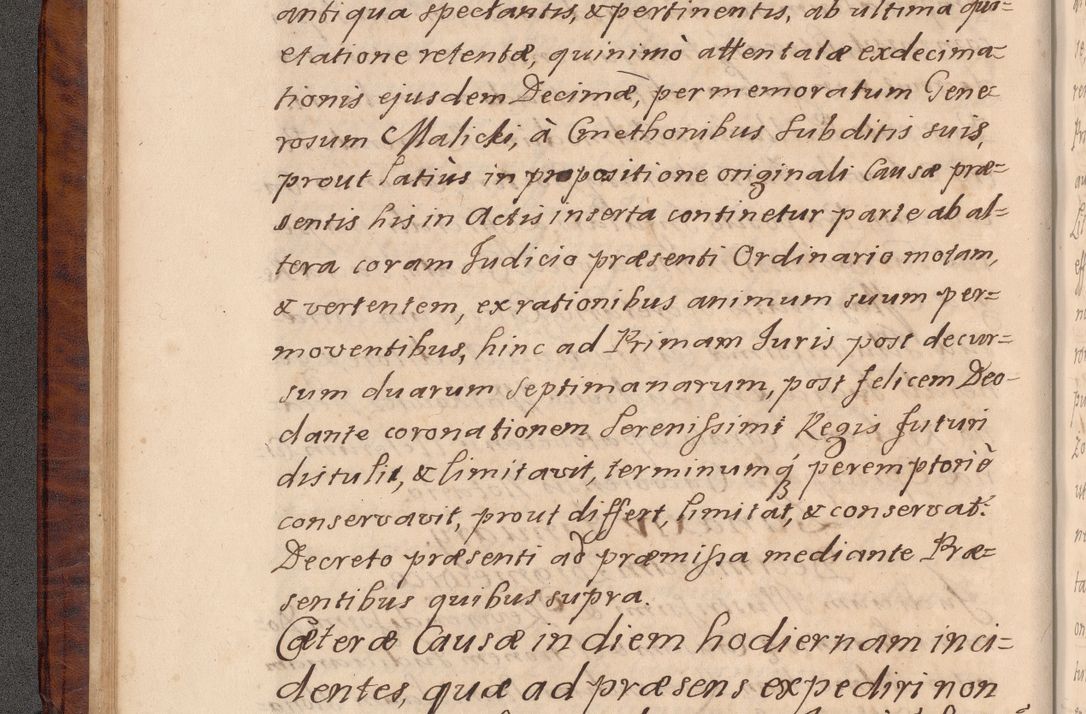 antiqua spectantis, & pertinentis, ab ultima qui=
etatione retentæ, quinimò attentatæ exdecima=
tionis ejusdem Decimæ, per memoratum Gene=
rosum Malicki, à Cmethonibus Subditis suis,
prout latiùs in propositione originali Causæ præ=
sentis his in Actis inserta continetur parte ab al=
tera coram Judicio præsenti Ordinario motam,
& vertentem, ex rationibus animum suum per=
moventibus, hinc ad Primam Juris post decur=
sum duarum Septimanarum, post felicem Deo-
dante coronationem Serenissimi Regis futuri
distulit, & limitavit, terminumq́ꝫ peremptoriè
conservavit, prout differt, limitat, & conservat.
Decreto præsenti ad præmissa mediante Præ=
sentibus quibus supra.
Cæteræ Causæ in diem hodiernam inci=
dentes, quæ ad præsens expediri non